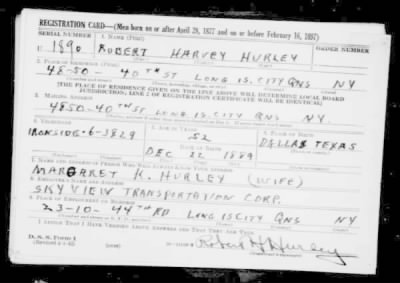 REGISTRATION CARD—(Men born on or after April 28, 1877 and on or before February 16, 1897)
SERIAL NUMBER 1. NAME (Print) ORDER NUMBER
U 1890 ROBERT HARVEY HURLEY
2. PLACE OF RESIDENCE (Print)
48-50 - 40TH ST LONG IS. CITY QNS NY
[THE PLACE OF RESIDENCE GIVEN ON THE LINE ABOVE WILL DETERMINE LOCAL BOARD
JURISDICTION; LINE 2 OF REGISTRATION CERTIFICATE WILL BE IDENTICAL]
3. MAILING ADDRESS
4850-40TH ST LONG IS. CITY QNS NY.
4. TELEPHONE 5. AGE IN YEARS 6. PLACE OF BIRTH
52
DATE OF BIRTH
IRONSIDE-6-3829 DEC 22 1889 DALLAS TEXAS
7. NAME AND ADDRESS OF PERSON WHO WILL ALWAYS KNOW YOUR ADDRESS
MARGARET K. HURLEY (WIFE)
8. EMPLOYER'S NAME AND ADDRESS
SKY VIEW TRANSPORTATION CORP.
9. PLACE OF EMPLOYMENT OR BUSINESS
23-10-44TH RD LONG IS CITY QNS NY
I AFFIRM THAT I HAVE VERIFIED ABOVE ANSWERS AND THAT THEY ARE TRUE.
D. S. S. Form 1
Robert H Hurley